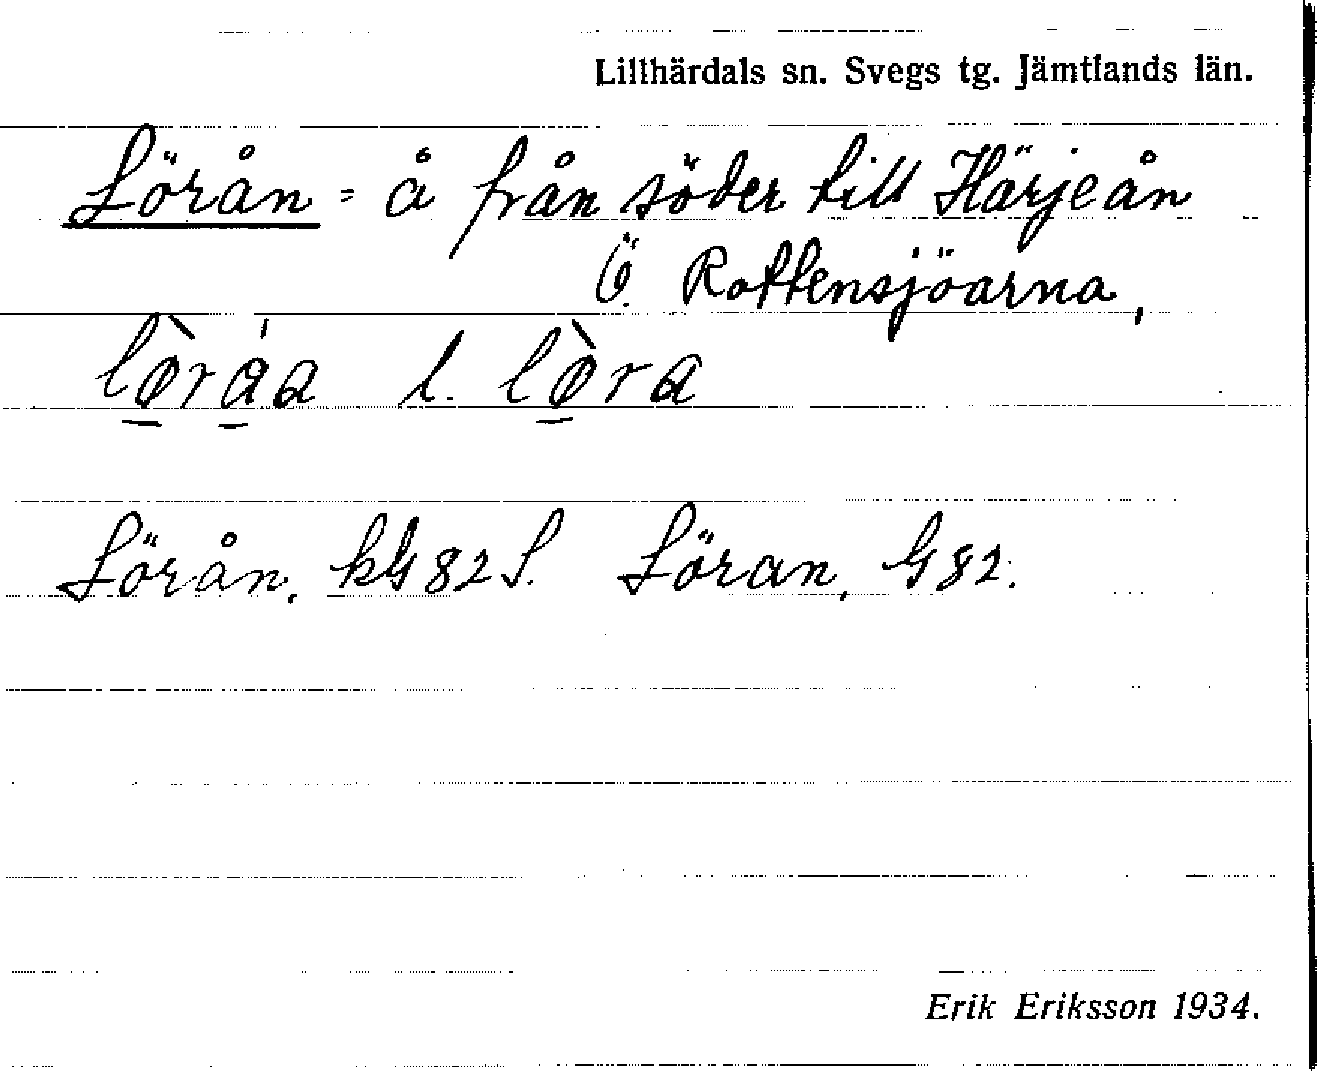 Lillhärdals sn. Svegs tg. Jämtlands län.
Lörån = å från söder till Härjeån
Ö. Rottensjöarna,
lø̀råa l. lø̀ra
Lörån, kG82S. Löran, G82.
Erik Eriksson 1934.